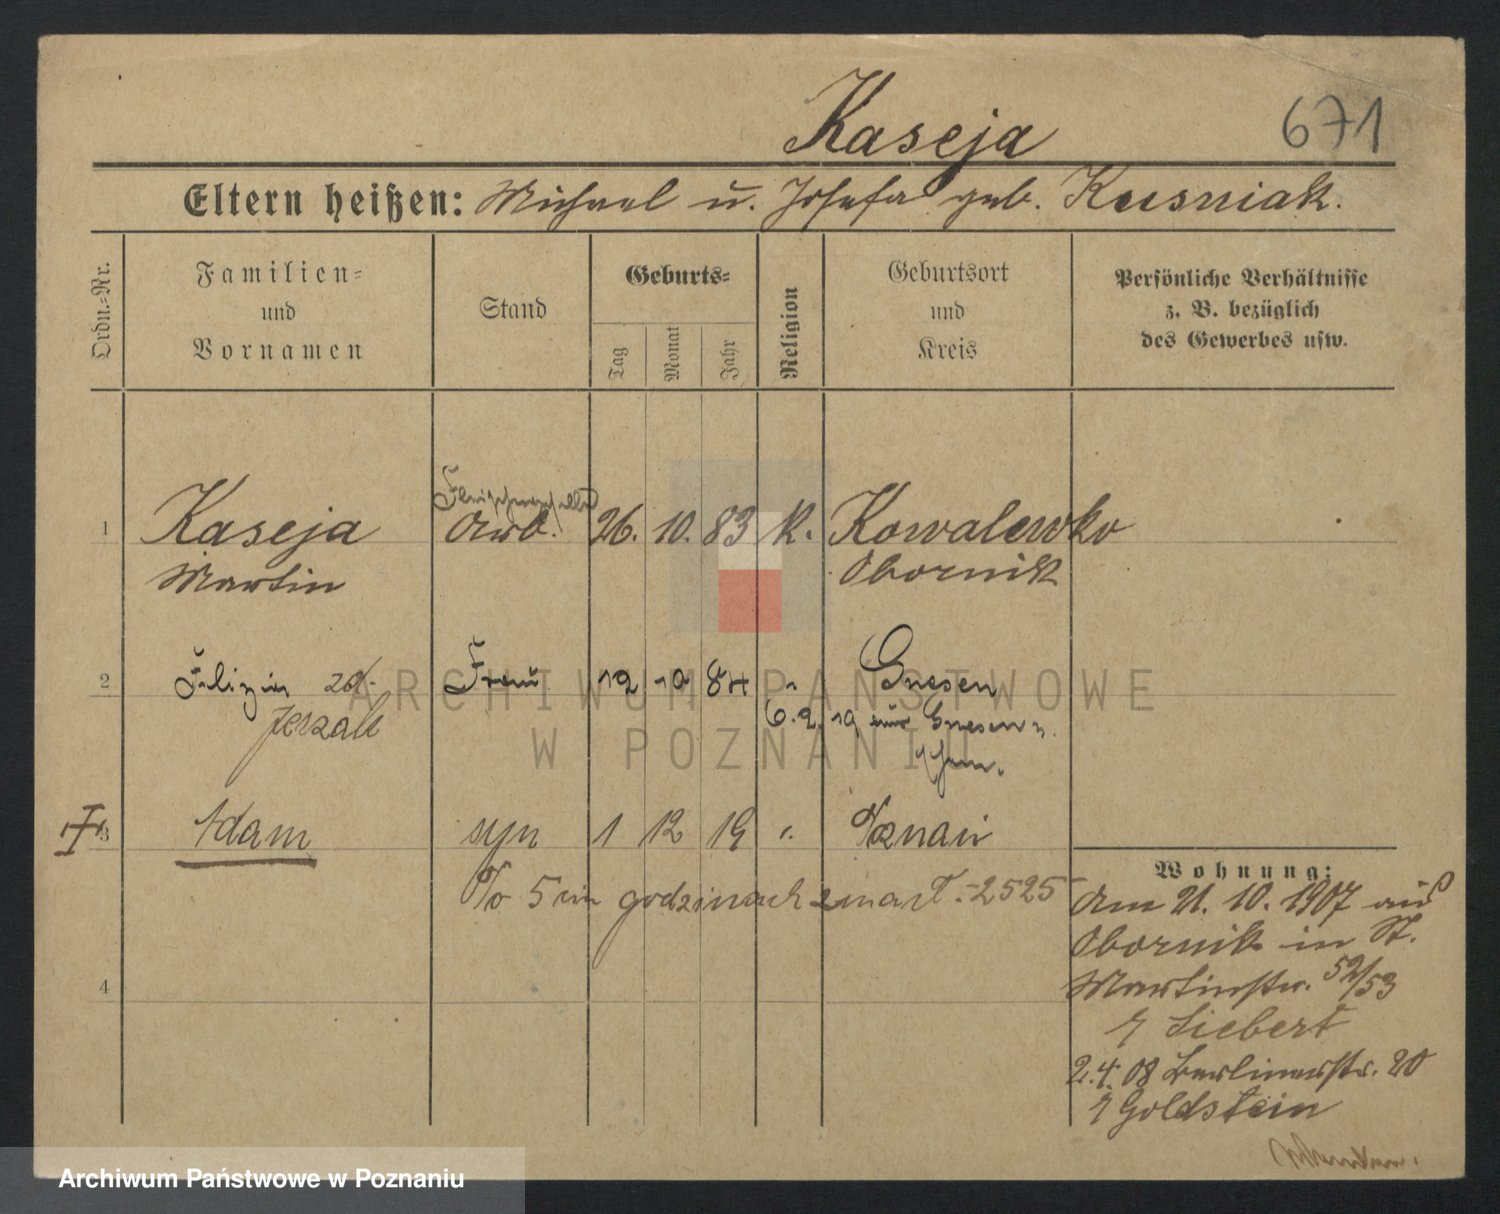 Kaseja
671
Eltern heißen: Michael u. Josefa geb. Kusniak.
Ordn.-Nr.
Familien-
und
Vornamen
Stand
Geburts-
Tag
Monat
Jahr
Religion
Geburtsort
und
Kreis
Persönliche Verhältnisse
z. B. bezüglich
des Gewerbes usw.
Fleischergeselle
1 Kaseja Arb. 26. 10. 83 K. Kowalewko
Martin Obornik
2 Felizia Frau 12 10 84 " Gnesen
Jerzak 6. 2. 19 aus Gnesen
3 Adam syn 1 12 19 ". Poznań
Po 5 godzinach zmarł. 2525
4
Wohnung:
Am 21. 10. 1907 aus
Obornik in St.
Martinstr. 52/53
Siebert
2. 4. 08 Berlinerstr. 20
Goldstein
ARCHIWUM PAŃSTWOWE
W POZNANIU
Archiwum Państwowe w Poznaniu